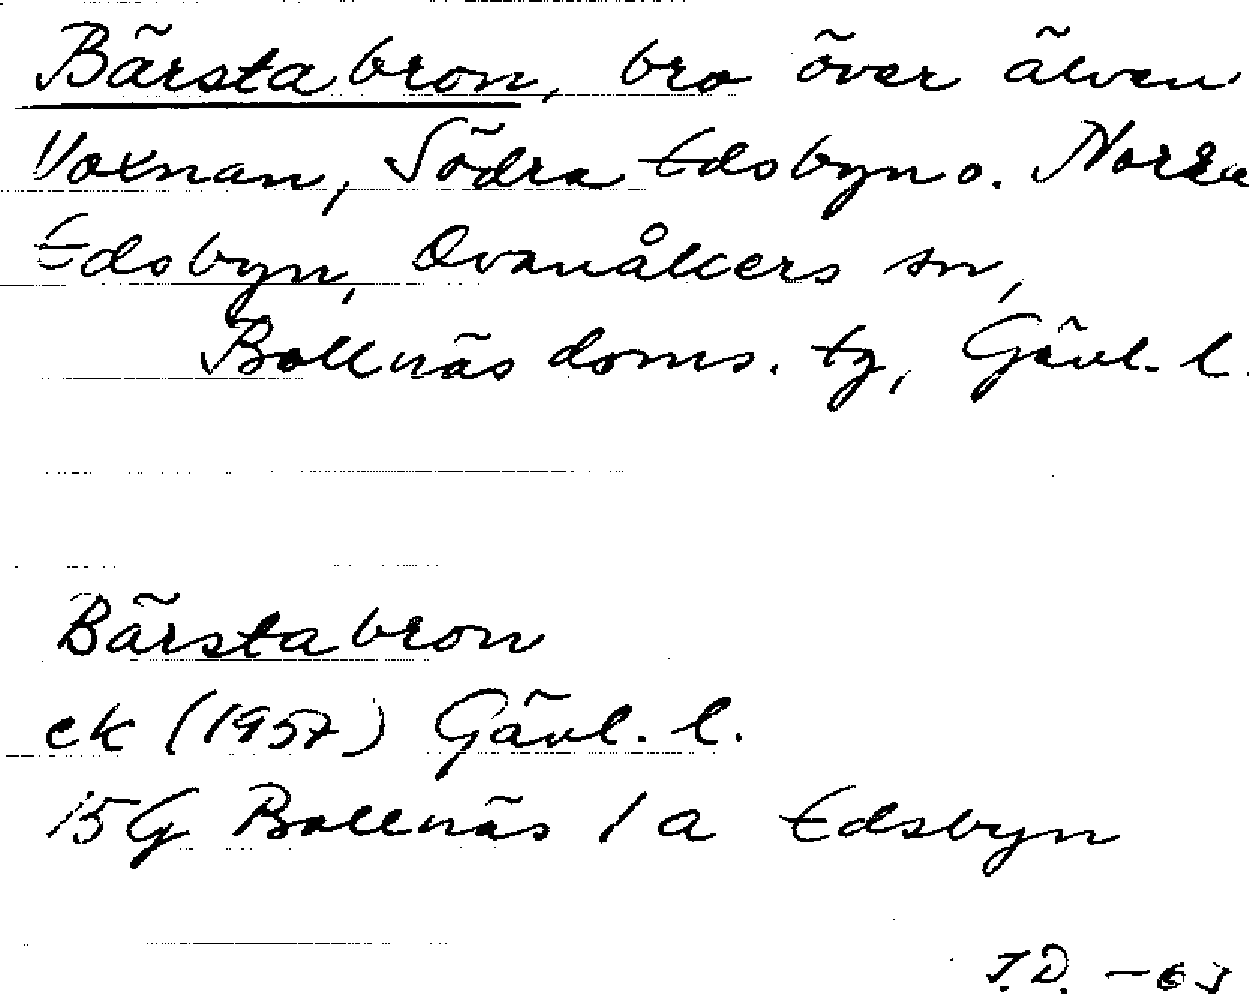 Bärstabron, bro över älven
Voxnan, Södra Edsbyn o. Norra
Edsbyn, Ovanåkers sn,
Bollnäs doms. tg, Gävl. l.
Bärstabron
ek (1957) Gävl. l.
15G Bollnäs 1 a Edsbyn